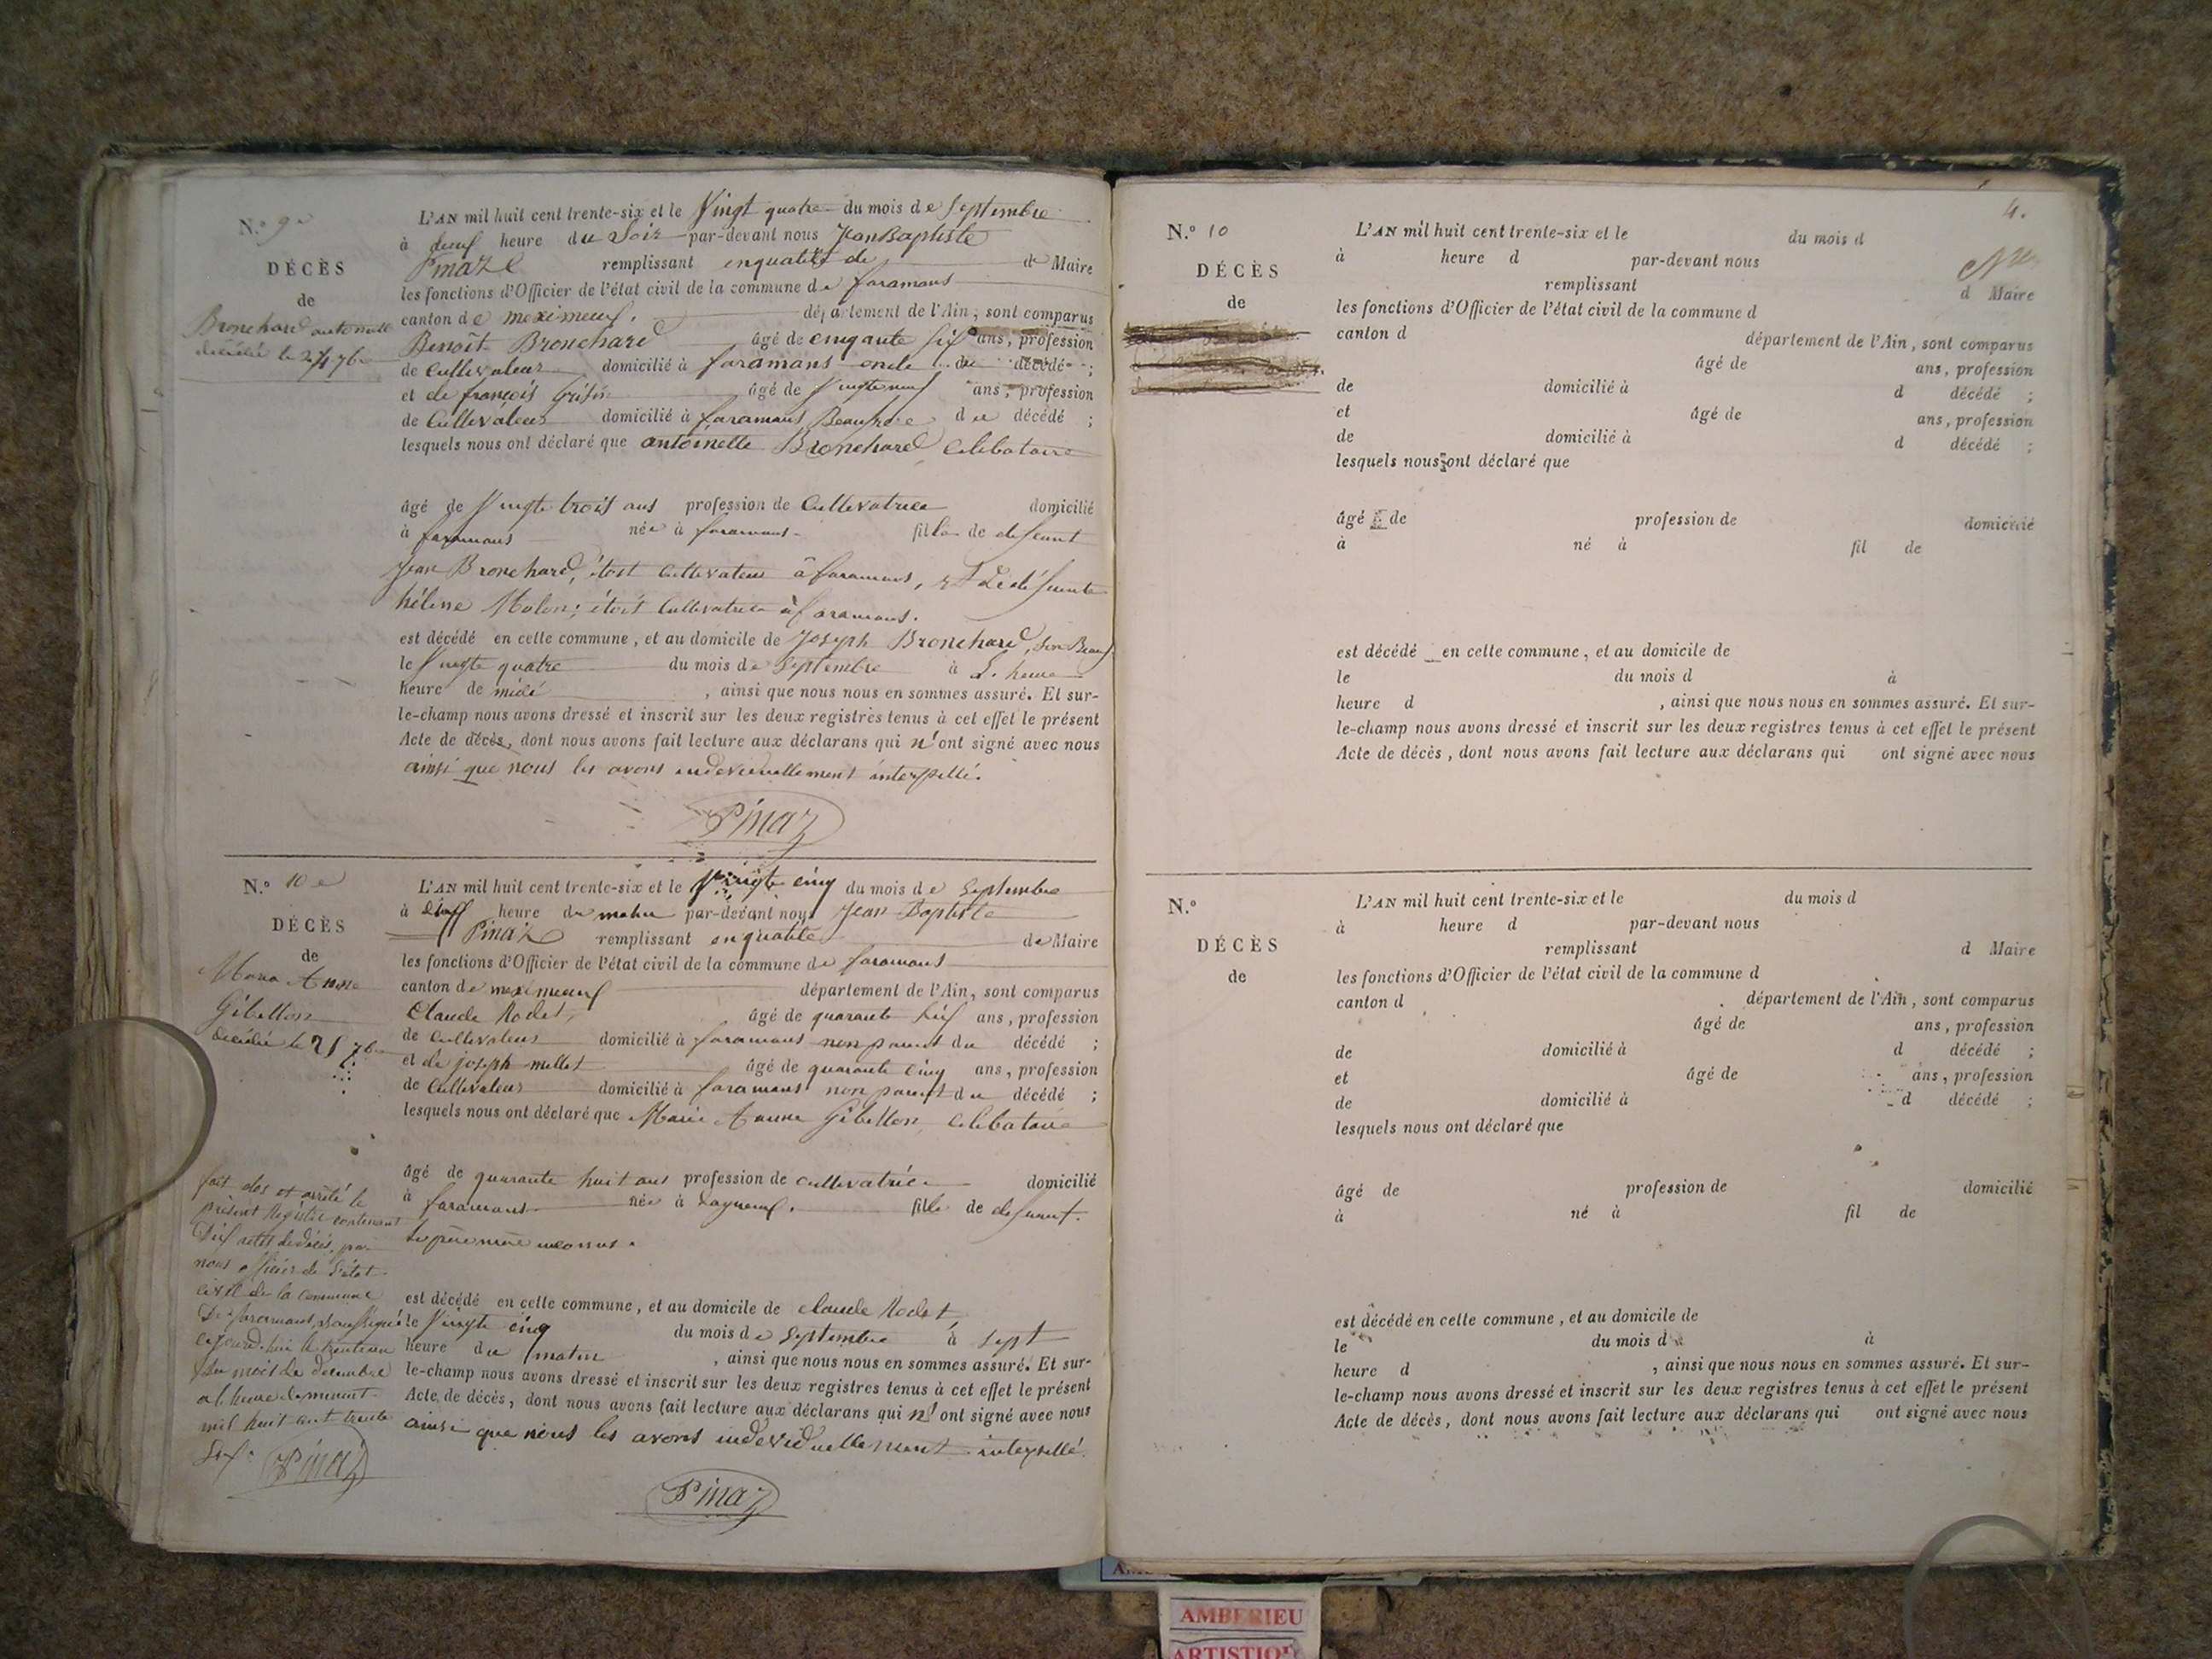 N.º 9e
DÉCÈS
de
Bronchard antoinette
décédée le 24 7bre
L'AN mil huit cent trente-six et le Vingt quatre du mois de Septembre
à heure du Soir par-devant nous Jean Baptiste
Pinaz remplissant en qualité de de Maire
les fonctions d'Officier de l'état civil de la commune de faramans
canton de meximeux. département de l'Ain, sont comparus
Benoit Bronchard âgé de cinqante six ans, profession
de Cultivateur domicilié à faramans oncle de décédé ;
et de françois âgé de Vingt neuf ans, profession
de Cultivateur domicilié à faramans Beaufrere du décédé ;
lesquels nous ont déclaré que antoinette Bronchard Celibataire
âgé de Vingt trois ans profession de Cultivatrice domicilié
à faramans née à faramans. fille de defeunt
Jean Bronchard, étoit Cultivateur à faramans, et de défeunte
hélène Molon; étoit Cultivatrice à faramans.
est décédé en cette commune, et au domicile de Joseph Bronchard, son Beauf
le Vingt quatre du mois de Septembre à L. heure
heure de midi , ainsi que nous nous en sommes assuré. Et sur-
le-champ nous avons dressé et inscrit sur les deux registres tenus à cet effet le présent
Acte de décès, dont nous avons fait lecture aux déclarans qui n'ont signé avec nous
ainsi que nous les avons individuellement interpellé.
Pinaz
N.º 10e
DÉCÈS
de
Maria Anne
Gibetton
décédée le 25 7bre
L'AN mil huit cent trente-six et le Vingt cinq du mois de Septembre
à heure du matin par-devant nous Jean Baptiste
Pinaz remplissant en qualité de Maire
les fonctions d'Officier de l'état civil de la commune de faramans
canton de meximeux département de l'Ain, sont comparus
Claude Rodet, âgé de quarante six ans, profession
de Cultivateur domicilié à faramans non parent du décédé ;
et de joseph millet âgé de quarante cinq ans, profession
de Cultivateur domicilié à faramans non parent du décédé ;
lesquels nous ont déclaré que Marie Anne Gibetton, Celibataire
âgé de quarante huit ans profession de cultivatrice domicilié
à faramans née à Lagneux. fille de defeunt.
Le père mère inconnus.
est décédé en cette commune, et au domicile de Claude Rodet,
le Vingt cinq du mois de Septembre à Sept
heure du matin , ainsi que nous nous en sommes assuré. Et sur-
le-champ nous avons dressé et inscrit sur les deux registres tenus à cet effet le présent
Acte de décès, dont nous avons fait lecture aux déclarans qui n'ont signé avec nous
ainsi que nous les avons individuellement interpellé.
Pinaz
fait clos et arrêté le
présent Registre contenant
Dix actes de décès, par
nous officier de l'état
civil de la commune
De faramans, soussigné
cejourd'hui le trente un
du mois de decembre
a l. heure de minuit
mil huit cent trente
Six. Pinaz
4.
N.º 10
DÉCÈS
de
L'AN mil huit cent trente-six et le du mois d
à heure d par-devant nous
remplissant d Maire
les fonctions d'Officier de l'état civil de la commune d
canton d département de l'Ain, sont comparus
âgé de ans, profession
de domicilié à d décédé ;
et âgé de ans, profession
de domicilié à d décédé ;
lesquels nous ont déclaré que
âgé de profession de domicilié
à né à fil de
est décédé en cette commune, et au domicile de
le du mois d à
heure d , ainsi que nous nous en sommes assuré. Et sur-
le-champ nous avons dressé et inscrit sur les deux registres tenus à cet effet le présent
Acte de décès, dont nous avons fait lecture aux déclarans qui ont signé avec nous
N.º
DÉCÈS
de
L'AN mil huit cent trente-six et le du mois d
à heure d par-devant nous
remplissant d Maire
les fonctions d'Officier de l'état civil de la commune d
canton d département de l'Ain, sont comparus
âgé de ans, profession
de domicilié à d décédé ;
et âgé de ans, profession
de domicilié à d décédé ;
lesquels nous ont déclaré que
âgé de profession de domicilié
à né à fil de
est décédé en cette commune, et au domicile de
le du mois d à
heure d , ainsi que nous nous en sommes assuré. Et sur-
le-champ nous avons dressé et inscrit sur les deux registres tenus à cet effet le présent
Acte de décès, dont nous avons fait lecture aux déclarans qui ont signé avec nous
AMBERIEU
ARTISTIQ